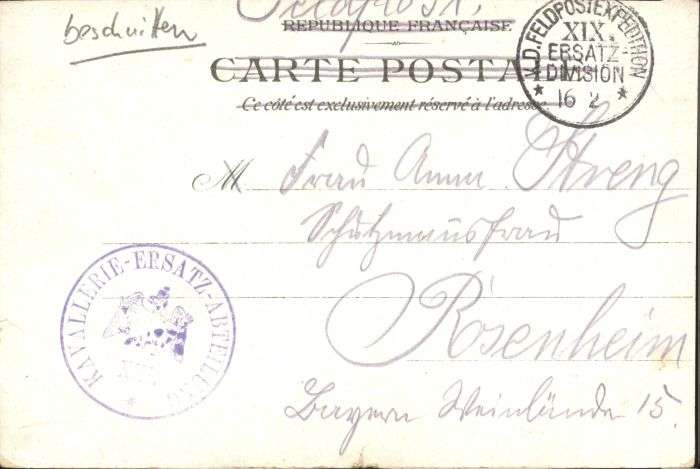 beschnitten
Feldpost.
RÉPUBLIQUE FRANÇAISE
CARTE POSTA
Ce côté est exclusivement réservé à l'adresse.
K.D.FELDPOSTEXPEDITION
XIX.
ERSATZ-
DIVISION
* 16 2 *
M Frau Anna Streng
Schutzmannsfrau
Rosenheim
Bayern Weinlände 15.
KAVALLERIE-ERSATZ-ABTEILUNG